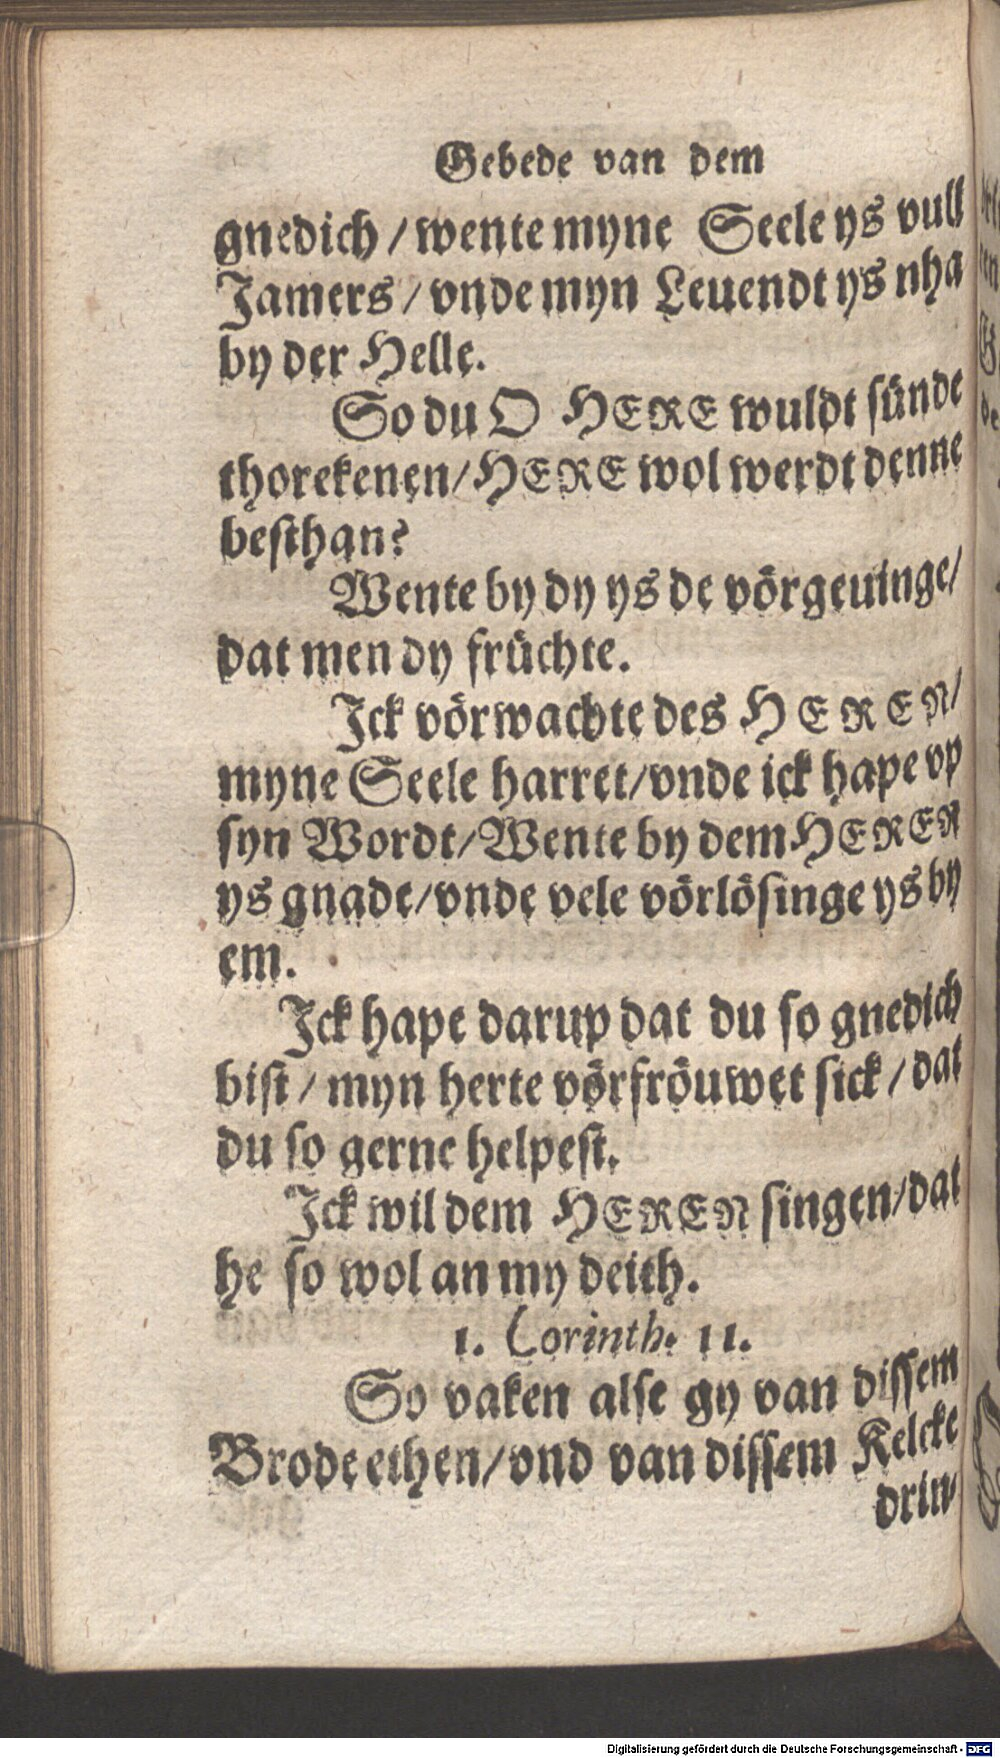 Gebede van dem
gnedich / wente myne Seele ys vull
Jamers / vnde myn Leuendt ys nha
by der Helle.
So du O HERE wuldt sünde
thorekenen / HERE wol werdt denne
besthan?
Wente by dy ys de vörgeuinge /
dat men dy früchte.
Jck vörwachte des HEREN /
myne Seele harret / vnde ick hape vp
syn Wordt / Wente by dem HEREN
ys gnade / vnde vele vörlösinge ys by
em.
Jck hape darup dat du so gnedich
bist / myn herte vörfröuwet sick / dat
du so gerne helpest.
Jck wil dem HEREN singen / dat
he so wol an my deith.
1. Corinth. 11.
So vaken alse gy van dissem
Brode ethen / vnd van dissem Kelcke
drin-
Digitalisierung gefördert durch die Deutsche Forschungsgemeinschaft - DFG